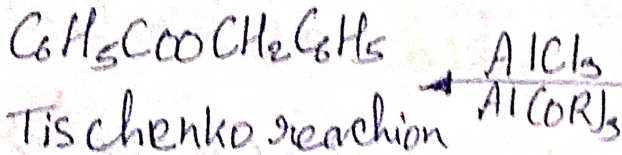 C6H5COOCH2C6H5
AlCl3
Al(OR)3
Tischenko reaction